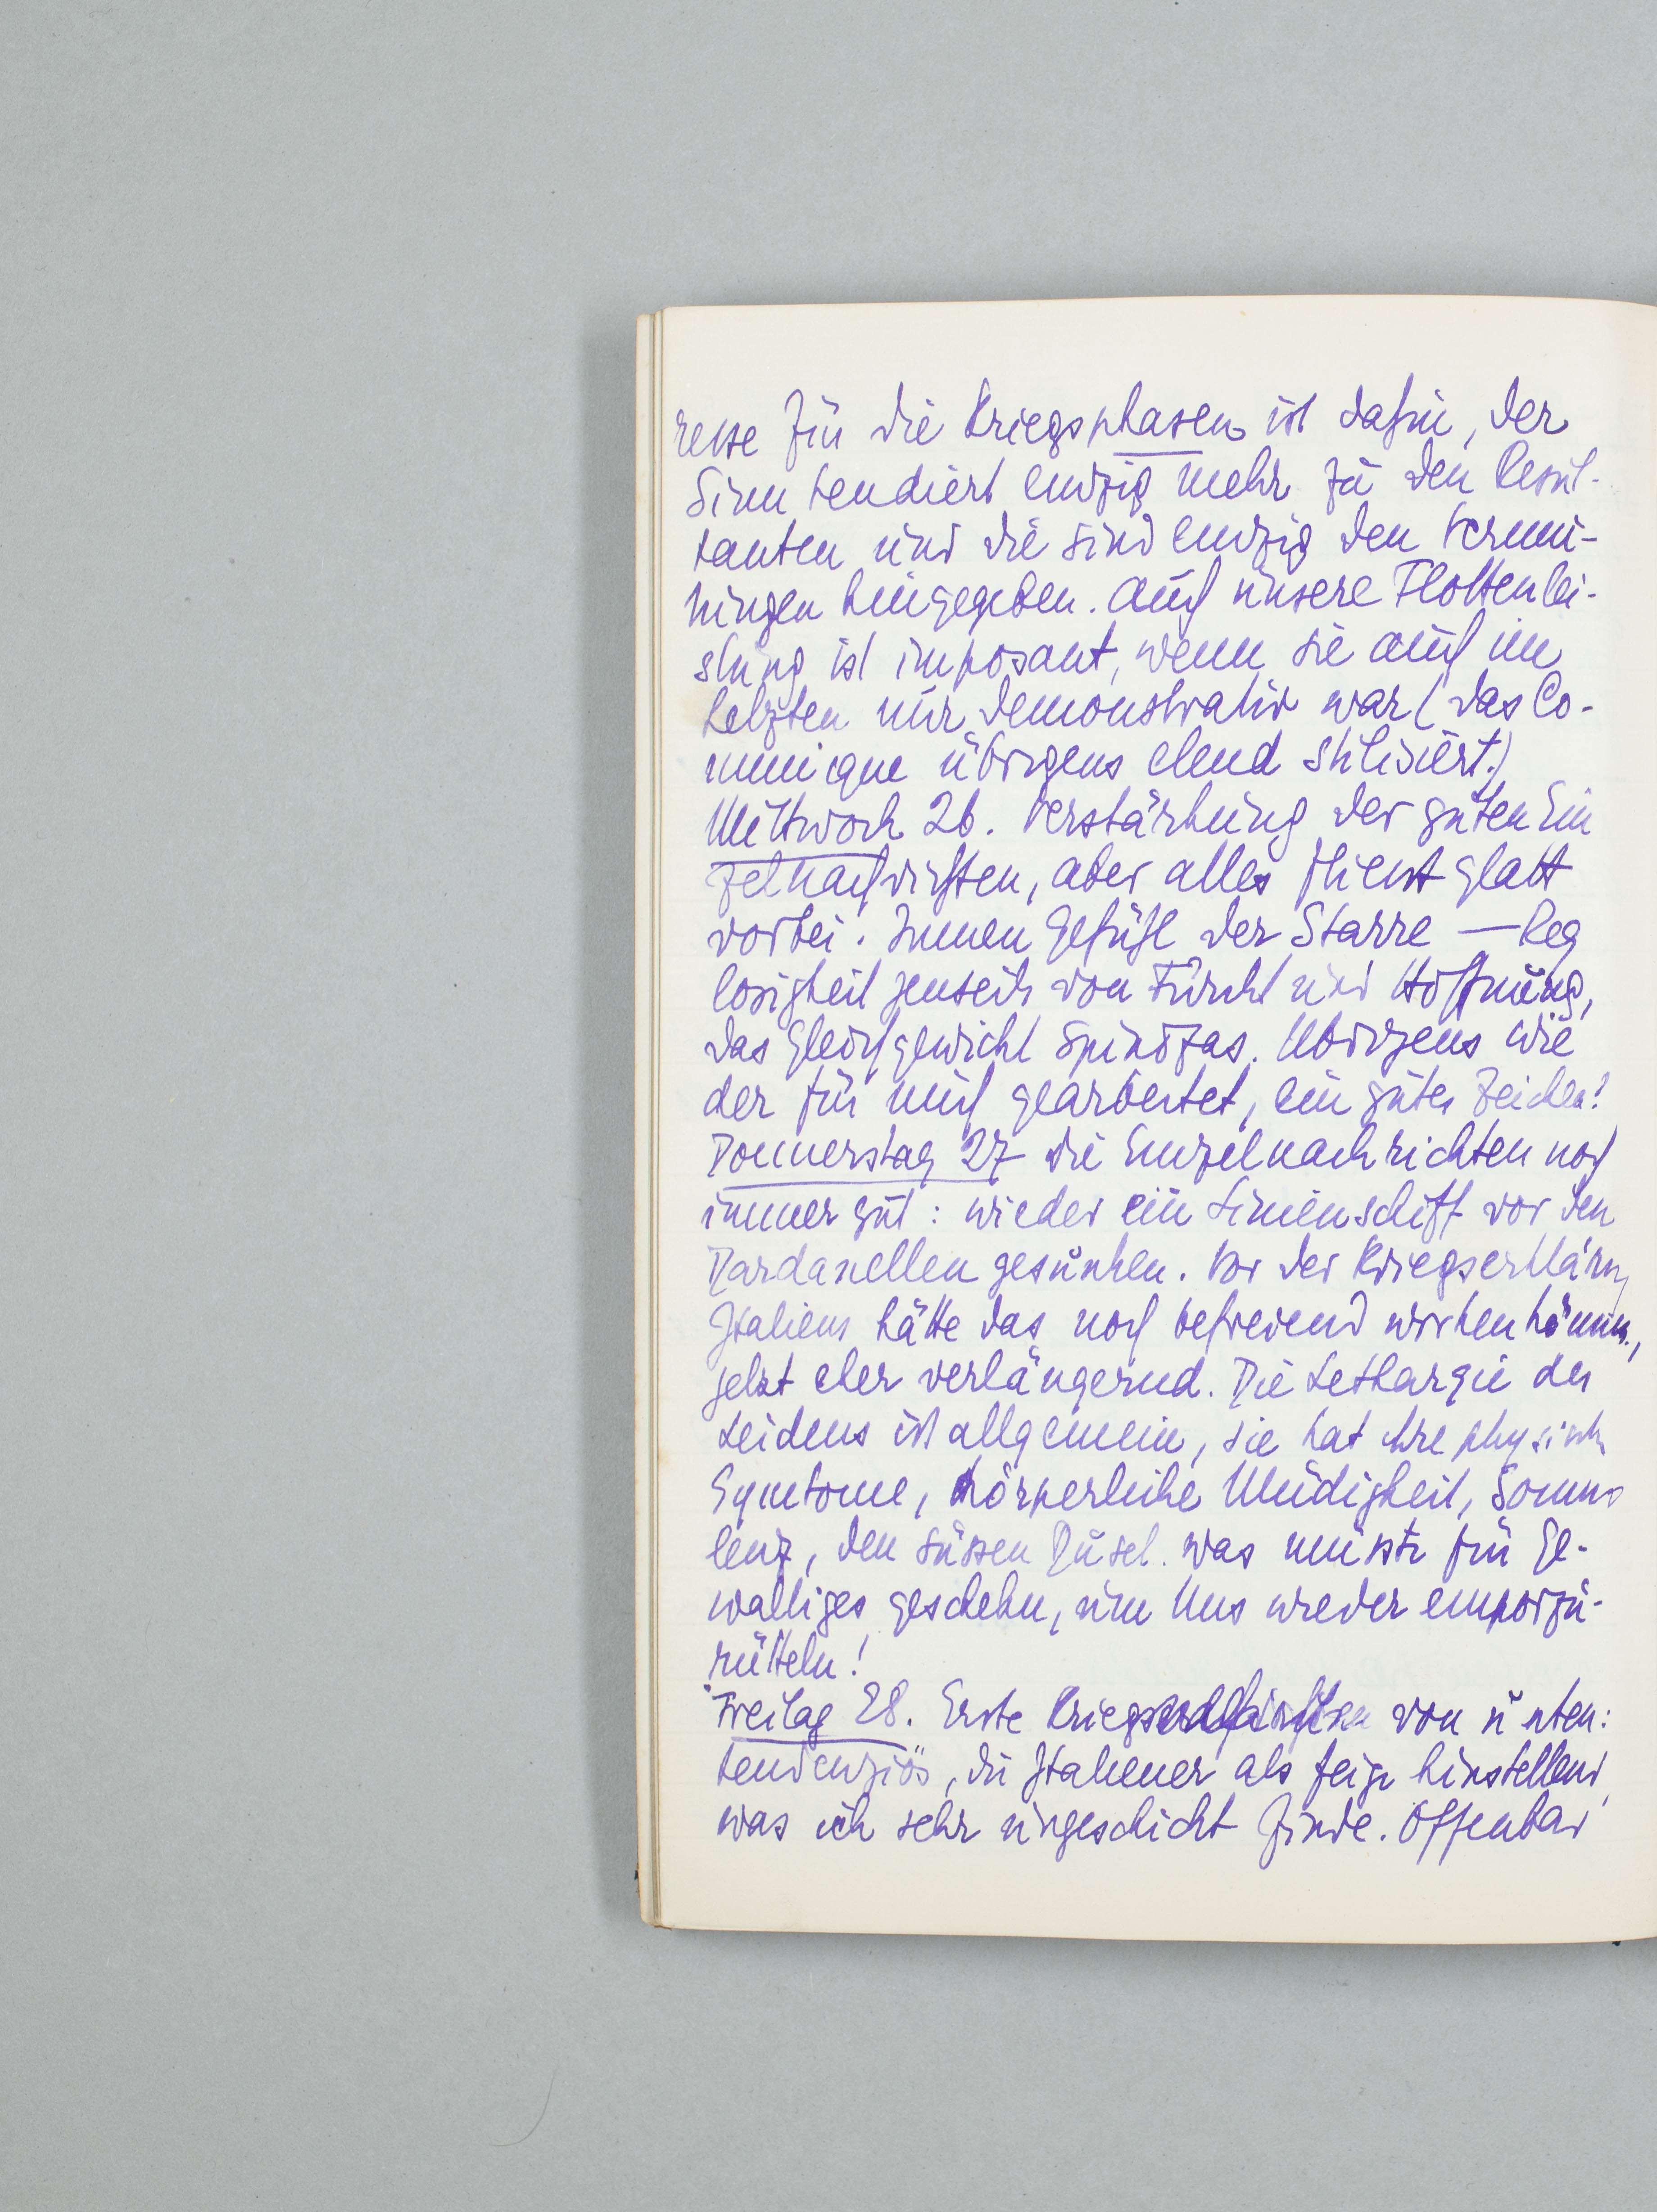 resse für die Kriegsphasen ist dahin, der
Sinn tendiert einzig mehr zu den Resul-
tanten und die sind einzig den Vermu-
tungen hingegeben. Auch unsere Flottenlei-
stung ist imposant, wenn sie auch im
Letzten nur demonstrativ war (das Co-
munique übrigens elend stilisiert.)
Mittwoch 26. Verstärkung der guten Ein
zelnachrichten, aber alles fliesst glatt
vorbei. Innen Gefühl der Starre — Reg
losigkeit jenseits von Furcht und Hoffnung,
das Gleichgewicht Spinozas. Übrigens wie
der für mich gearbeitet, ein gutes Zeichen!
Donnerstag 27 die Einzelnachrichten noch
immer gut: wieder ein Linienschiff vor den
Dardanellen gesunken. Vor der Kriegserklärung
Italiens hätte das noch befreiend wirken können,
jetzt eher verlängernd. Die Lethargie des
Leidens ist allgemein, sie hat ihre physisch
Symtome, körperliche Müdigkeit, Somno
lenz, den süssen Dusel. Was müsste für Ge-
waltiges geschehn, um uns wieder emporzu-
rütteln!
Freitag 28. Erste von unten:
tendenziös, die Italiener als feige hinstellend,
was ich sehr ungeschickt finde. Offenbar